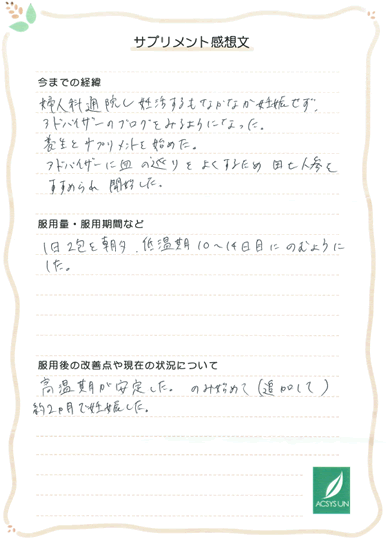 サプリメント感想文
今までの経緯
婦人科通院し妊活するもなかなか妊娠せず、
アドバイザーのブログをみるようになった。
養生とサプリメントを始めた。
アドバイザーに血の巡りをよくするため田七人参を
すすめられ開始した。
服用量・服用期間など
1日2包を朝夕、低温期10〜14日目にのむように
した。
服用後の改善点や現在の状況について
高温期が安定した。のみ始めて(追加して)
約2ヵ月で妊娠した。
ACSYS UN